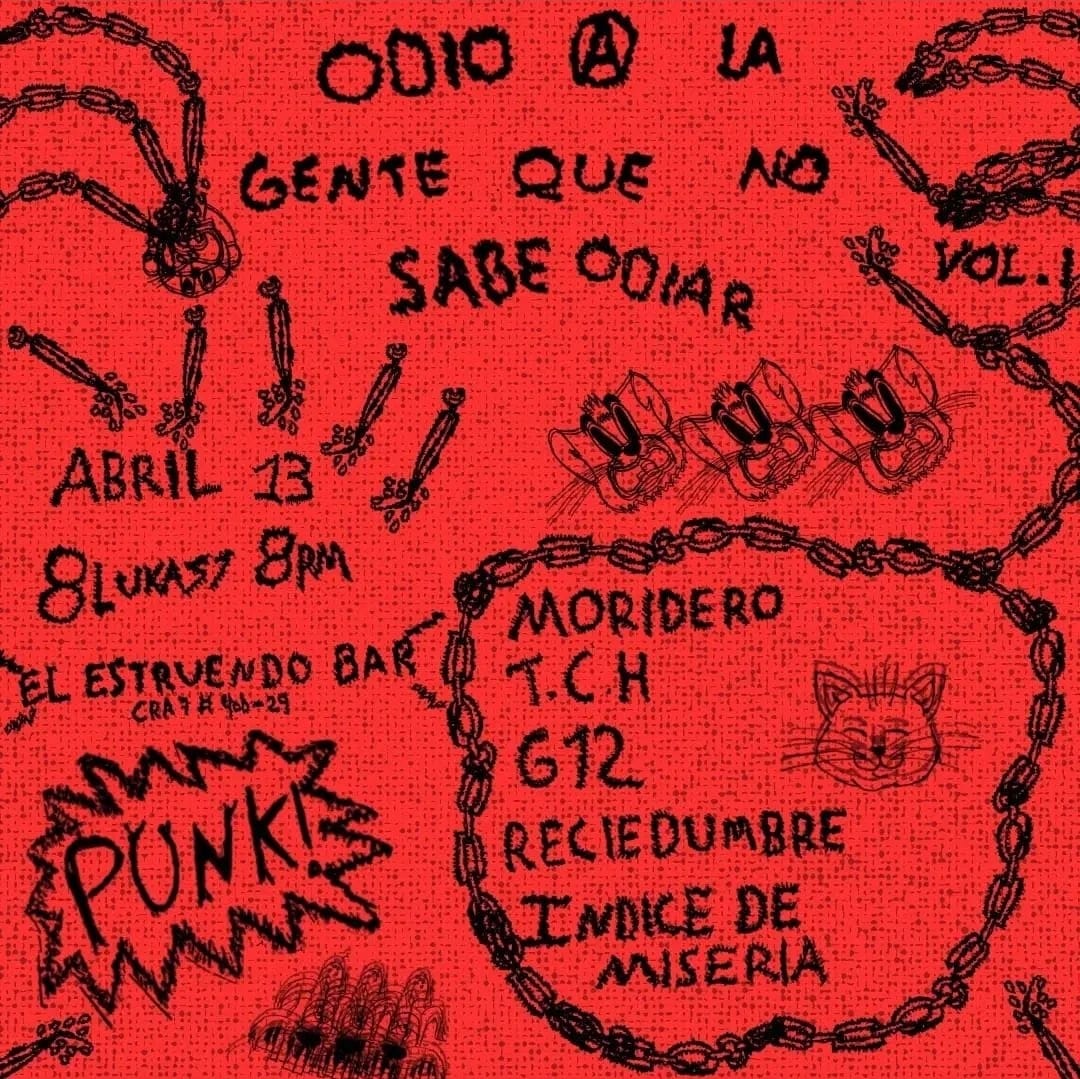 ODIO A LA
GENTE QUE NO
SABE ODIAR
VOL. 1
ABRIL 13
8 LUKAS 8PM
EL ESTRUENDO BAR
CRA 7 # 40D-29
PUNK!
MORIDERO
T.C.H
G12
RECIEDUMBRE
INDICE DE
MISERIA